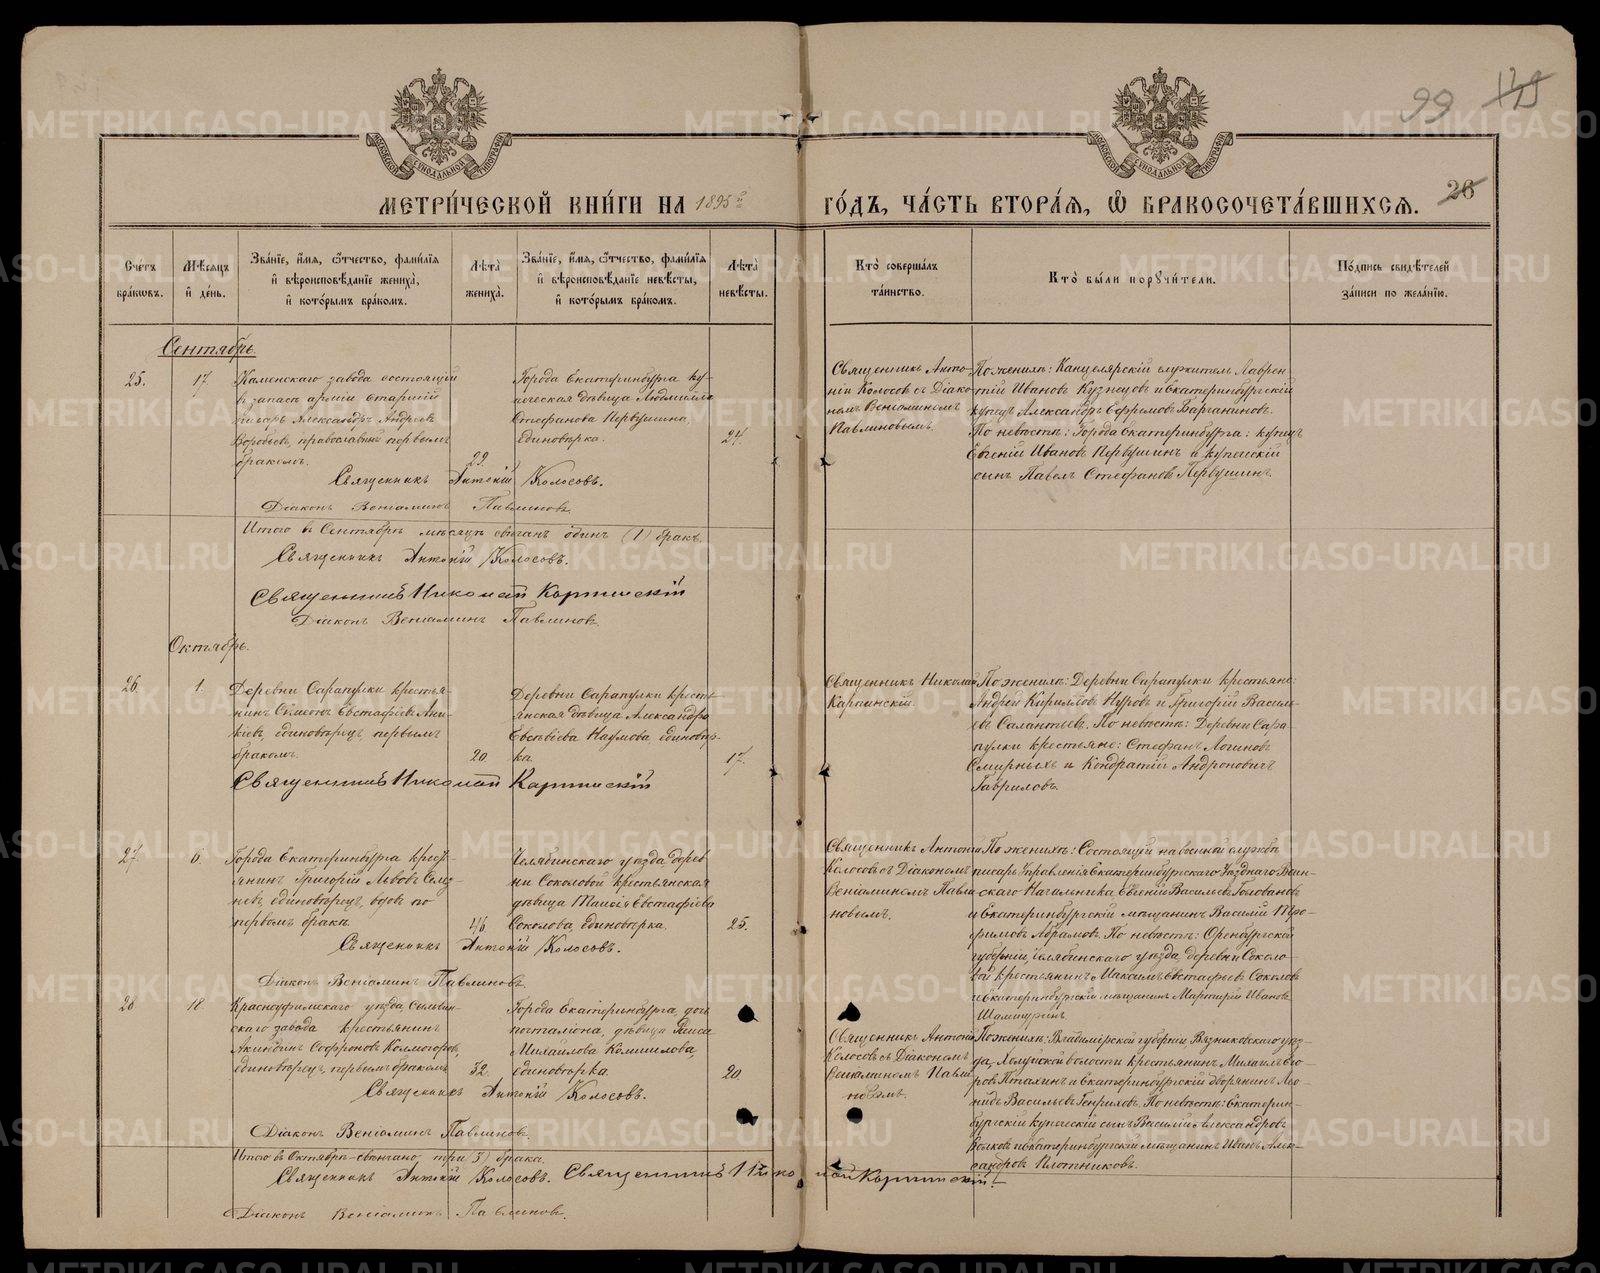 99
26
МЕТРИ́ЧЕСКОЙ КНИ́ГИ НА 1895й ГО́ДЪ, ЧА́СТЬ ВТОРА́Я, Ѡ БРАКОСОЧЕТА́ВШИХСЯ.
Сче́тъ бра́ковъ.
Мѣ́сяцъ и де́нь.
Зва́нїе, и́мя, ѻ́тчество, фами́лїя и вѣроисповѣ́данїе жениха̀, и кото́рымъ бра́комъ.
Лѣ́та жениха̀.
Зва́нїе, и́мя, ѻ́тчество, фами́лїя и вѣроисповѣ́данїе невѣ́сты, и кото́рымъ бра́комъ.
Лѣ́та невѣ́сты.
Кто̀ соверша́лъ та́инство.
Кто̀ бы́ли порꙋчи́тели.
По́дпись свидѣ́телей за́писи по жела́нїю.
Сентябрь.
25.
17.
Каменскаго завода состоящій
в запасѣ арміи старшій
писарь Александръ Андреевъ
Воробьевъ, православный первымъ
бракомъ.
29.
Города Екатеринбурга ку-
печеская дѣвица Людмилла
Стефанова Первушина,
единовѣрка.
24.
Священникъ Анто-
ній Колосовъ съ Діако-
номъ Веніаминомъ
Павлиновымъ.
По женихѣ: Канцелярскій служитель Лаврен-
тій Ивановъ Кузнецовъ и Екатеринбургскій
купецъ Александръ Ефремовъ Варганиновъ.
По невѣстѣ: Города Екатеринбурга: купецъ
Евгеній Ивановъ Первушинъ и купеческій
сынъ Павелъ Стефановъ Первушинъ.
Священникъ Антоній Колосовъ.
Діаконъ Веніаминъ Павлиновъ.
Итого въ Сентябрѣ мѣсяцѣ свѣнчан один (1) бракъ.
Священникъ Антоній Колосовъ.
Священникъ Николай Карпинскій
Діаконъ Веніаминъ Павлиновъ.
Октябрь.
26.
1.
Деревни Сарапулки крестья-
нинъ Симеонъ Евстафіевъ
единовѣрецъ, первымъ
бракомъ.
20.
Деревни Сарапулки кресть-
янская дѣвица Александра
Евсѣвіева Наумова, единовѣр-
ка.
17.
Священникъ Николай
Карпинскій.
По женихѣ: Деревни Сарапулки крестьяне:
Андрей Кирилловъ Нуровъ и Григорій Василь-
евъ Салантьевъ. По невѣстѣ: Деревни Сара-
пулки крестьяне: Стефанъ Логиновъ
Смирныхъ и Кондратій Андроновичъ
Гавриловъ.
Священникъ Николай Карпинскій
27.
6.
Города Екатеринбурга крест-
янинъ Григорій Львовъ Селез-
невъ, единовѣрецъ, вдовъ по
первомъ бракѣ.
46.
Челябинскаго уѣзда дерев
ни Соколовой крестьянская
дѣвица Таисія Евстафіева
Соколова, единовѣрка.
25.
Священникъ Антоній
Колосовъ съ Діакономъ
Веніаминомъ Павли-
новымъ.
По женихѣ: Состоящій на военной службѣ
писарь Управленія Екатеринбургскаго Уѣзднаго Воин-
скаго Начальника Евгеній Васильевъ Головановъ
и Екатеринбургскій мѣщанинъ Василій Тро-
фимовъ Абрамовъ. По невѣстѣ: Оренбургской
губерніи, Челябинскаго уѣзда, деревни Соколо-
вой крестьянинъ Максимъ Евстафьевъ Соколовъ
и екатеринбургскій мѣщанинъ Мартирій Ивановъ
Шампуринъ.
Священникъ Антоній Колосовъ.
Діаконъ Веніаминъ Павлиновъ.
28
18.
Красноуфимскаго уѣзда, Сылвин-
скаго завода крестьянинъ
Акиндинъ Софроновъ Колмогоровъ,
единовѣрецъ, первымъ бракомъ
32.
Города Екатеринбурга, дочь
почталіона, дѣвица Раиса
Михаилова Комшилова,
единовѣрка.
20.
Священникъ Антоній
Колосовъ съ Діакономъ
Веніаминомъ Павли-
новымъ.
По женихѣ: Владимірской губерніи Вязниковскаго уѣз-
да, Холуйской волости крестьянинъ Михаилъ Его-
ровъ Птахинъ и екатеринбургскій дворянинъ Лео-
нидъ Васильевъ Генриховъ. По невѣстѣ: Екатерин-
бургскій купеческій сынъ Василій Александровъ
Волковъ и екатеринбургскій мѣщанинъ Иванъ Алек-
сандровъ Плотниковъ.
Священникъ Антоній Колосовъ.
Діаконъ Веніаминъ Павлиновъ.
Итого въ Октябрѣ свѣнчано три (3) брака.
Священникъ Антоній Колосовъ. Священникъ Николай Карпинскій
Діаконъ Веніаминъ Павлиновъ.